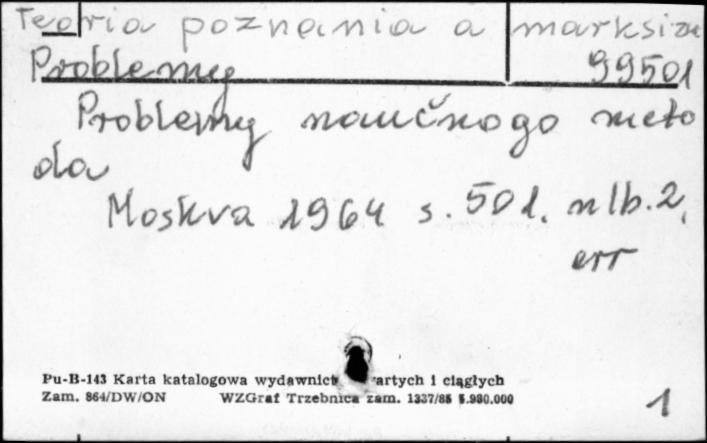 Teoria poznania a marksizm
Problemy 99501
Problemy naučnogo meto
da
Moskva 1964 s. 501. nlb. 2,
err
Pu-B-143 Karta katalogowa wydawnict artych i ciągłych
Zam. 864/DW/ON WZGraf Trzebnica zam. 1337/85 5.990.000
1